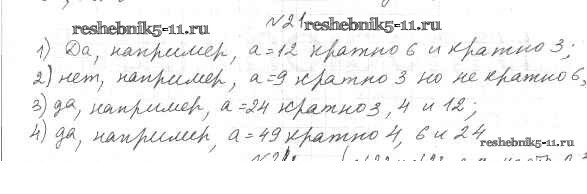 №21
reshebnik5-11.ru
1) Да, например, а=12 кратно 6 и кратно 3;
2) нет, например, а=9 кратно 3 но не кратно 6,
3) да, например, а=24 кратно 3, 4 и 12;
4) да, например, а=49 кратно 4, 6 и 24
reshebnik5-11.ru